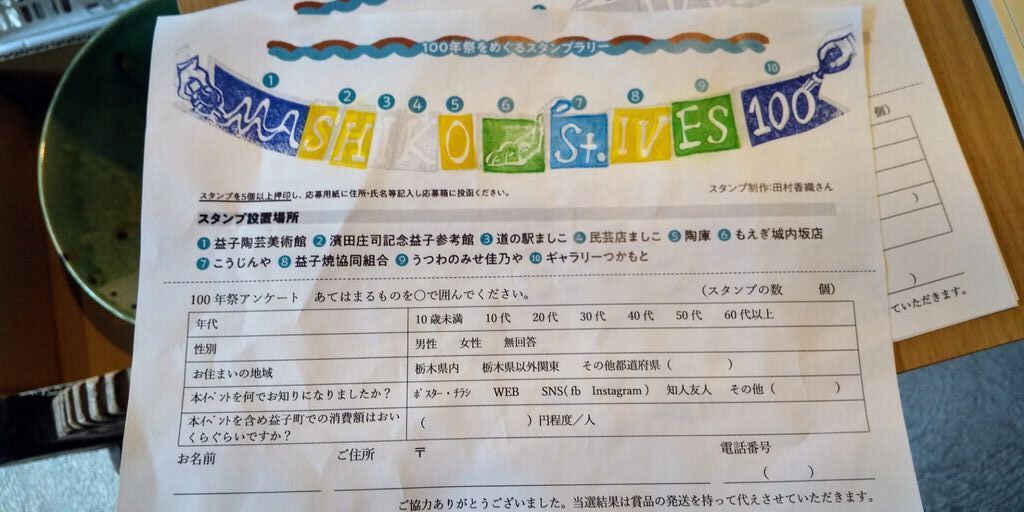 100年祭をめぐるスタンプラリー
① ② ③ ④ ⑤ ⑥ ⑦ ⑧ ⑨ ⑩
MASHIKO St.IVES 100
スタンプを5個以上押印し、応募用紙に住所・氏名等記入し応募箱に投函ください。
スタンプ制作:田村香織さん
スタンプ設置場所
① 益子陶芸美術館 ② 濱田庄司記念益子参考館 ③ 道の駅ましこ ④ 民芸店ましこ ⑤ 陶庫 ⑥ もえぎ城内坂店
⑦ こうじんや ⑧ 益子焼協同組合 ⑨ うつわのみせ佳乃や ⑩ ギャラリーつかもと
100年祭アンケート あてはまるものを〇で囲んでください。 (スタンプの数 個)
年代 10歳未満 10代 20代 30代 40代 50代 60代以上
性別 男性 女性 無回答
お住まいの地域 栃木県内 栃木県以外関東 その他都道府県( )
本イベントを何でお知りになりましたか? ポスター・チラシ WEB SNS(fb Instagram) 知人友人 その他( )
本イベントを含め益子町での消費額はおい
くらぐらいですか? ( )円程度/人
お名前 ご住所 〒 電話番号
( )
ご協力ありがとうございました。当選結果は賞品の発送を持って代えさせていただきます。
個)
)
)
ていただきます。